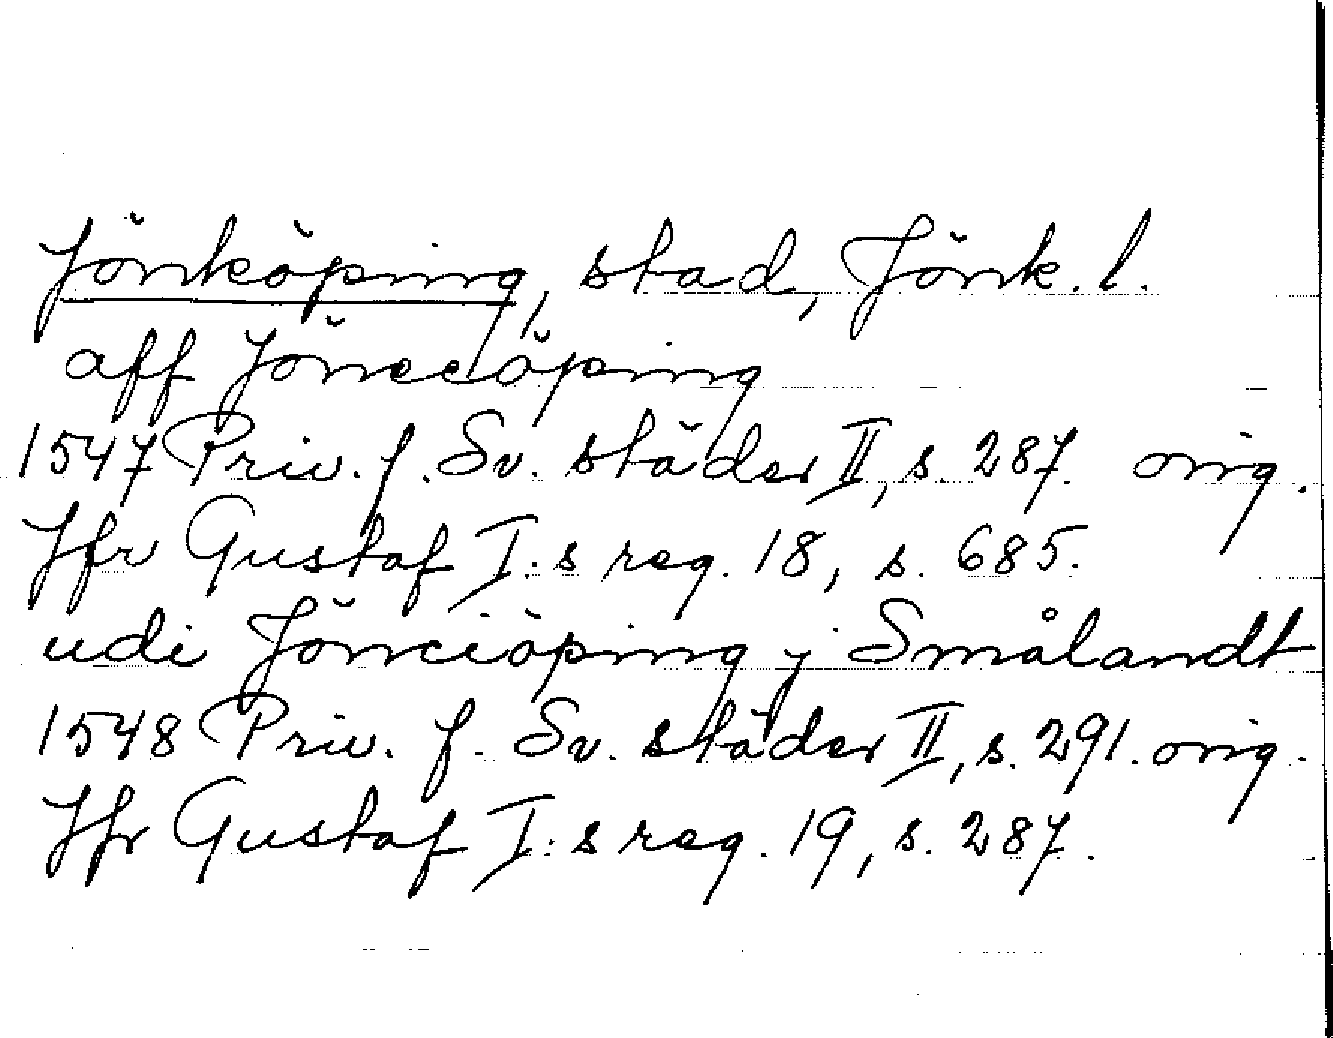 Jönköping, stad, Jönk. l.
aff Jönecöping
1547 Priv. f. Sv. städer II, s. 287. orig.
Jfr Gustaf I:s reg. 18, s. 685.
udi Jönciöping j Smålandt
1548 Priv. f. Sv. städer II, s. 291. orig.
Jfr Gustaf I:s reg. 19, s. 287.